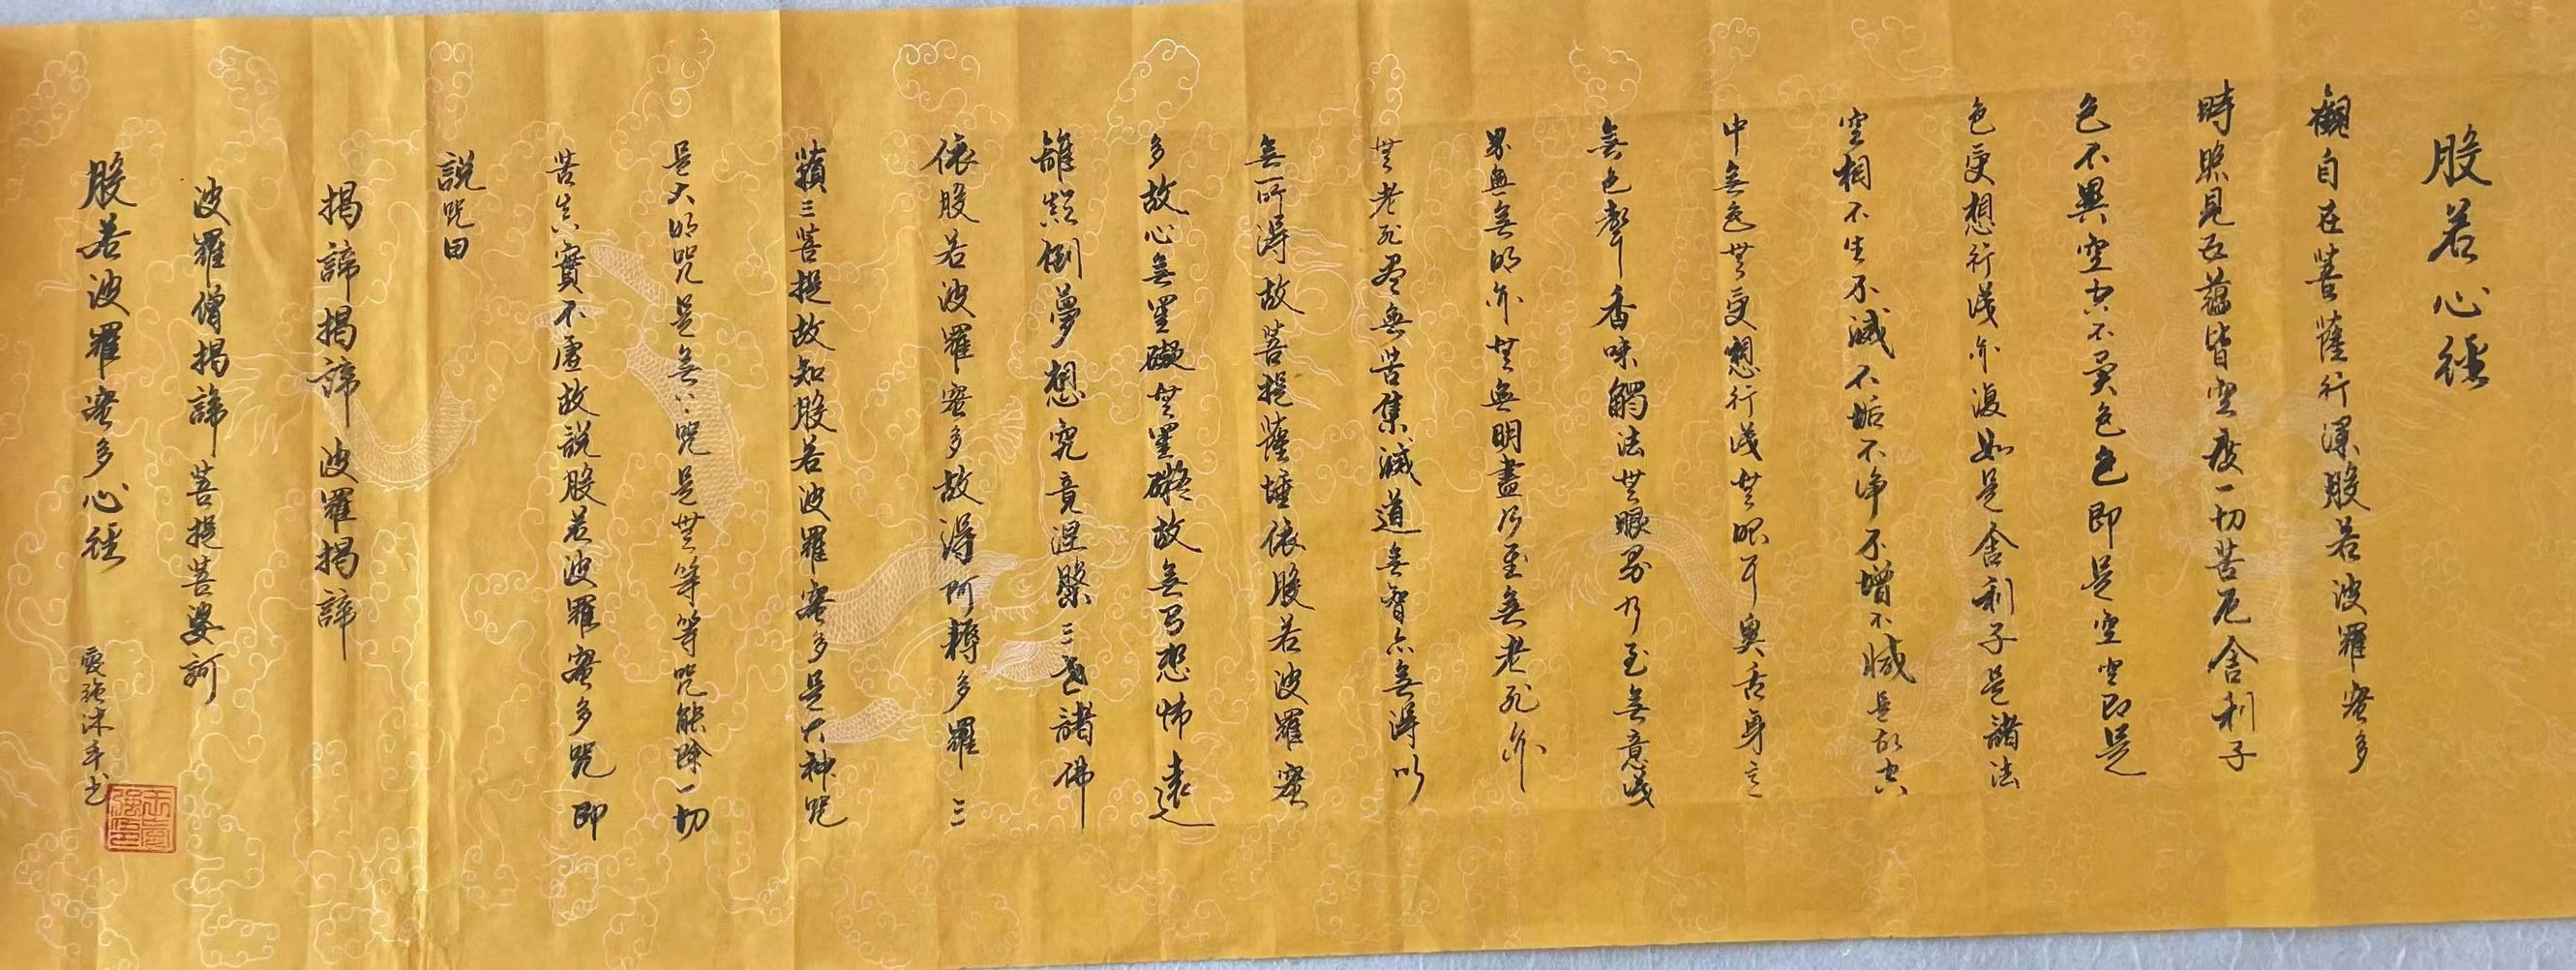 般若心經
觀自在菩薩行深般若波羅蜜多
時照見五蘊皆空度一切苦厄舍利子
色不異空空不異色色即是空空即是
色受想行識亦復如是舍利子是諸法
空相不生不滅不垢不净不增不減是故空
中無色無受想行識無眼耳鼻舌身意
無色聲香味觸法無眼界乃至無意識
界無無明亦無無明盡乃至無老死亦
無老死盡無苦集滅道無智亦無得以
無所得故菩提薩埵依般若波羅蜜
多故心無罣礙無罣礙故無有恐怖遠
離顛倒夢想究竟涅槃三世諸佛
依般若波羅蜜多故得阿耨多羅三
藐三菩提故知般若波羅蜜多是大神咒
是大明咒是無上咒是無等等咒能除一切
苦真實不虛故說般若波羅蜜多咒即
說咒曰
揭諦揭諦波羅揭諦
波羅僧揭諦菩提薩婆訶
般若波羅蜜多心經
沐手書